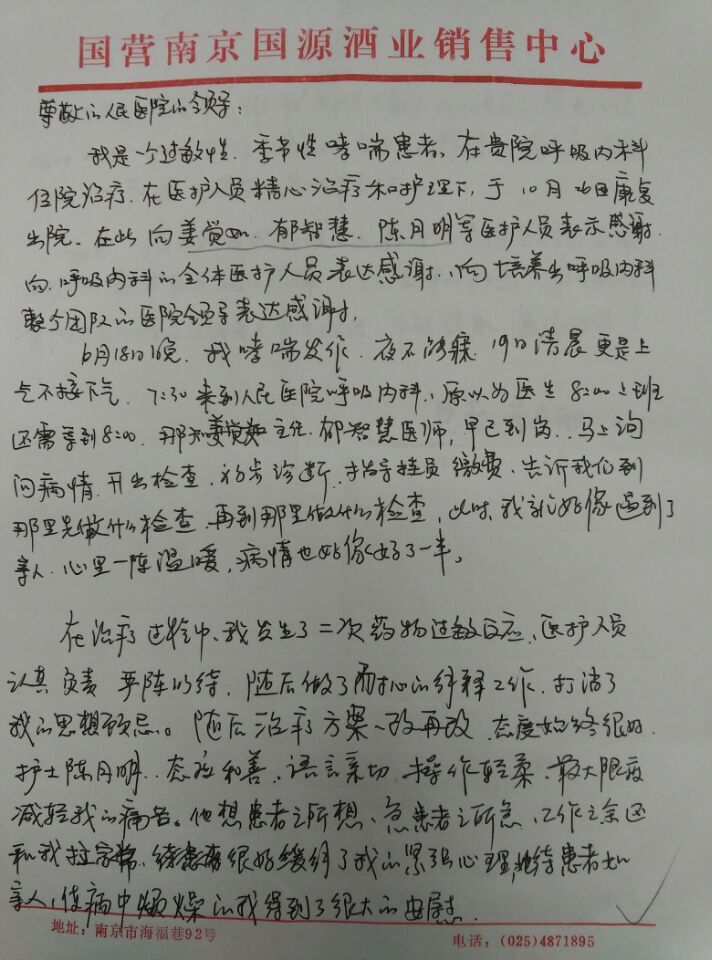 国营南京国源酒业销售中心
尊敬的人民医院的领导：
我是一个过敏性．季节性哮喘患者，在贵院呼吸内科
住院治疗．在医护人员精心治疗和护理下，于10月26日康复
出院．在此向姜觉如．郁智慧．陈月明等医护人员表示感谢．
向．呼吸内科的全体医护人员表达感谢，向培养出呼吸内科
整个团队的医院领导表达感谢，
6月18日晚．我哮喘发作．夜不能寐．19日清晨更是上
气不接下气．7:30来到人民医院呼吸内科，原以为医生8:00上班
还需等到8:00．那知姜觉如主任．郁智慧医师，早已到岗．马上询
问病情．开出检查．初步诊断．指导挂员缴费．告诉我们到
那里先做什么检查．再到那里做什么检查，此时，我就好像遇到了
亲人．心里一阵温暖，病情也好像好了一半。
在治疗过程中，我发生了二次药物过敏反应．医护人员
认真负责 严阵以待．随后做了耐心的解释工作．打消了
我的思想顾忌。随后治疗方案一改再改．态度始终很好．
护士陈月明．态度和善．语言亲切．操作轻柔．最大限度
减轻我的痛苦。他想患者之所想、急患者之所急．工作之余还
和我拉家常，很好缓解了我的紧张心理，她待患者如
亲人，使病中烦燥的我得到了很大的安慰．
地址：南京市海福巷92号
电话：(025)4871895